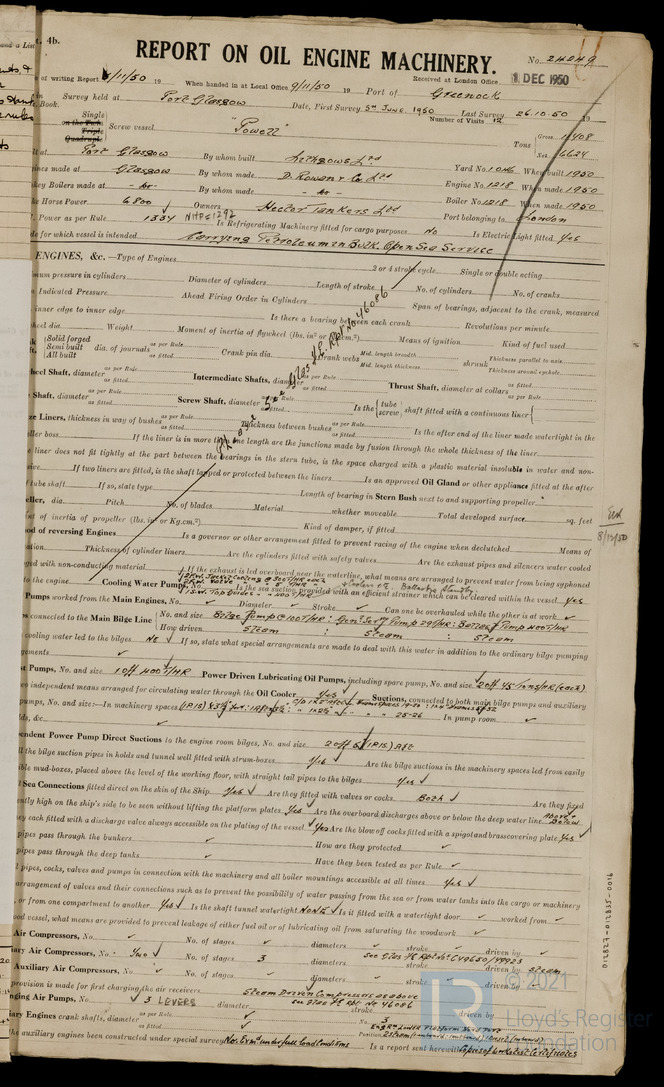 t. 4b.
REPORT ON OIL ENGINE MACHINERY.
No. 24249
at writing Report 6/11/50 19 When handed in at Local Office 9/11/50 19 Port of Greenock Received at London Office 1 DEC 1950
in Survey held at Port Glasgow Date, First Survey 5th June 1950 Last Survey 26.10.50 19
Book. Number of Visits 12
Single
on the Twin
Triple
Quadruple
Screw vessel "Powell" Tons Gross 11408
Net 6624
at Port Glasgow By whom built Lithgows Ltd Yard No. 1046 When built 1950
ines made at Glasgow By whom made D. Rowan & Co. Ltd Engine No. 1218 When made 1950
key Boilers made at - do - By whom made - do - Boiler No. 1218 When made 1950
ke Horse Power 6800 Owners Hector Tankers Ltd Port belonging to London
. Power as per Rule 1334 NHP=1292 Is Refrigerating Machinery fitted for cargo purposes No Is Electric Light fitted Yes
de for which vessel is intended Carrying Petroleum in Bulk. Open Sea Service
ENGINES, &c.—Type of Engines 2 or 4 stroke cycle Single or double acting
mum pressure in cylinders Diameter of cylinders Length of stroke No. of cylinders No. of cranks
Indicated Pressure Ahead Firing Order in Cylinders Span of bearings, adjacent to the crank, measured
inner edge to inner edge Is there a bearing between each crank Revolutions per minute
heel dia. Weight Moment of inertia of flywheel (lbs. in² or Kg.cm.²) Means of ignition Kind of fuel used
Solid forged
Semi built
All built
dia. of journals as per Rule as fitted Crank pin dia. Crank webs Mid. length breadth Mid. length thickness shrunk Thickness parallel to axis Thickness around eyehole
heel Shaft, diameter as per Rule as fitted Intermediate Shafts, diameter as per Rule as fitted Thrust Shaft, diameter at collars as per Rule as fitted
Shaft, diameter as per Rule as fitted Screw Shaft, diameter as per Rule as fitted Is the {tube screw} shaft fitted with a continuous liner
ze Liners, thickness in way of bushes as per Rule as fitted Thickness between bushes as per Rule as fitted Is the after end of the liner made watertight in the
ller boss If the liner is in more than one length are the junctions made by fusion through the whole thickness of the liner
liner does not fit tightly at the part between the bearings in the stern tube, is the space charged with a plastic material insoluble in water and non-
ve If two liners are fitted, is the shaft lapped or protected between the liners Is an approved Oil Gland or other appliance fitted at the after
tube shaft If so, state type Length of bearing in Stern Bush next to and supporting propeller
eller, dia. Pitch No. of blades Material whether moveable Total developed surface sq. feet
t of inertia of propeller (lbs. in² or Kg.cm.²) Kind of damper, if fitted
od of reversing Engines Is a governor or other arrangement fitted to prevent racing of the engine when declutched Means of
ation Thickness of cylinder liners Are the cylinders fitted with safety valves Are the exhaust pipes and silencers water cooled
ged with non-conducting material If the exhaust is led overboard near the waterline, what means are arranged to prevent water from being syphoned
to the engine Cooling Water Pumps, No. Is the sea suction provided with an efficient strainer which can be cleared within the vessel Yes
Pumps worked from the Main Engines, No. ✓ Diameter ✓ Stroke ✓ Can one be overhauled while the other is at work ✓
s connected to the Main Bilge Line No. and size Bilge Pump @ 100T/HR : Gen. Serv. Pump 29T/HR : Ballast Pump 400T/HR
How driven Steam : Steam : Steam
cooling water led to the bilges No ✓ If so, state what special arrangements are made to deal with this water in addition to the ordinary bilge pumping
gements ✓
st Pumps, No. and size 1 off 400T/HR Power Driven Lubricating Oil Pumps, including spare pump, No. and size 2 off 45 Tons/HR (each)
wo independent means arranged for circulating water through the Oil Cooler Yes Suctions, connected to both main bilge pumps and auxiliary
pumps, No. and size:—In machinery spaces
25-26 In pump room ✓
lds, &c. ✓
endent Power Pump Direct Suctions to the engine room bilges, No. and size 2 off
ll the bilge suction pipes in holds and tunnel well fitted with strum-boxes Yes ✓ Are the bilge suctions in the machinery spaces led from easily
ible mud-boxes, placed above the level of the working floor, with straight tail pipes to the bilges Yes ✓
l Sea Connections fitted direct on the skin of the Ship Yes ✓ Are they fitted with valves or cocks Both ✓ Are they fixed
ently high on the ship's side to be seen without lifting the platform plates Yes ✓ Are the overboard discharges above or below the deep water line Above & Below
ey each fitted with a discharge valve always accessible on the plating of the vessel ✓ Yes Are the blow off cocks fitted with a spigot and brass covering plate Yes ✓
pipes pass through the bunkers ✓ How are they protected ✓
pipes pass through the deep tanks ✓ Have they been tested as per Rule ✓
l pipes, cocks, valves and pumps in connection with the machinery and all boiler mountings accessible at all times Yes ✓
arrangement of valves and their connections such as to prevent the possibility of water passing from the sea or from water tanks into the cargo or machinery
, or from one compartment to another Yes ✓ Is the shaft tunnel watertight None ✓ Is it fitted with a watertight door ✓ worked from ✓
ood vessel, what means are provided to prevent leakage of either fuel oil or of lubricating oil from saturating the woodwork ✓
Air Compressors, No. ✓ No. of stages ✓ diameters ✓ stroke ✓ driven by ✓
iary Air Compressors, No. Two ✓ No. of stages 3 diameters See Glas FE Rpt No C49650/49923 stroke driven by Steam
Auxiliary Air Compressors, No. ✓ No. of stages ✓ diameters ✓ stroke ✓ driven by ✓
provision is made for first charging the air receivers Steam Driven Compressors as above
nging Air Pumps, No. ✓ 3 LEVERS diameter See Glas FE Rpt No 46086 stroke driven by
iary Engines crank shafts, diameter as per Rule as fitted ✓ No. 3
Position
he auxiliary engines been constructed under special survey Yes. Exmd under full load conditions Is a report sent herewith Copies of
Glas. F.E. Rpt No 46086
8/12/50
012827-012835-0016
© 2021
Lloyd's Register
Foundation